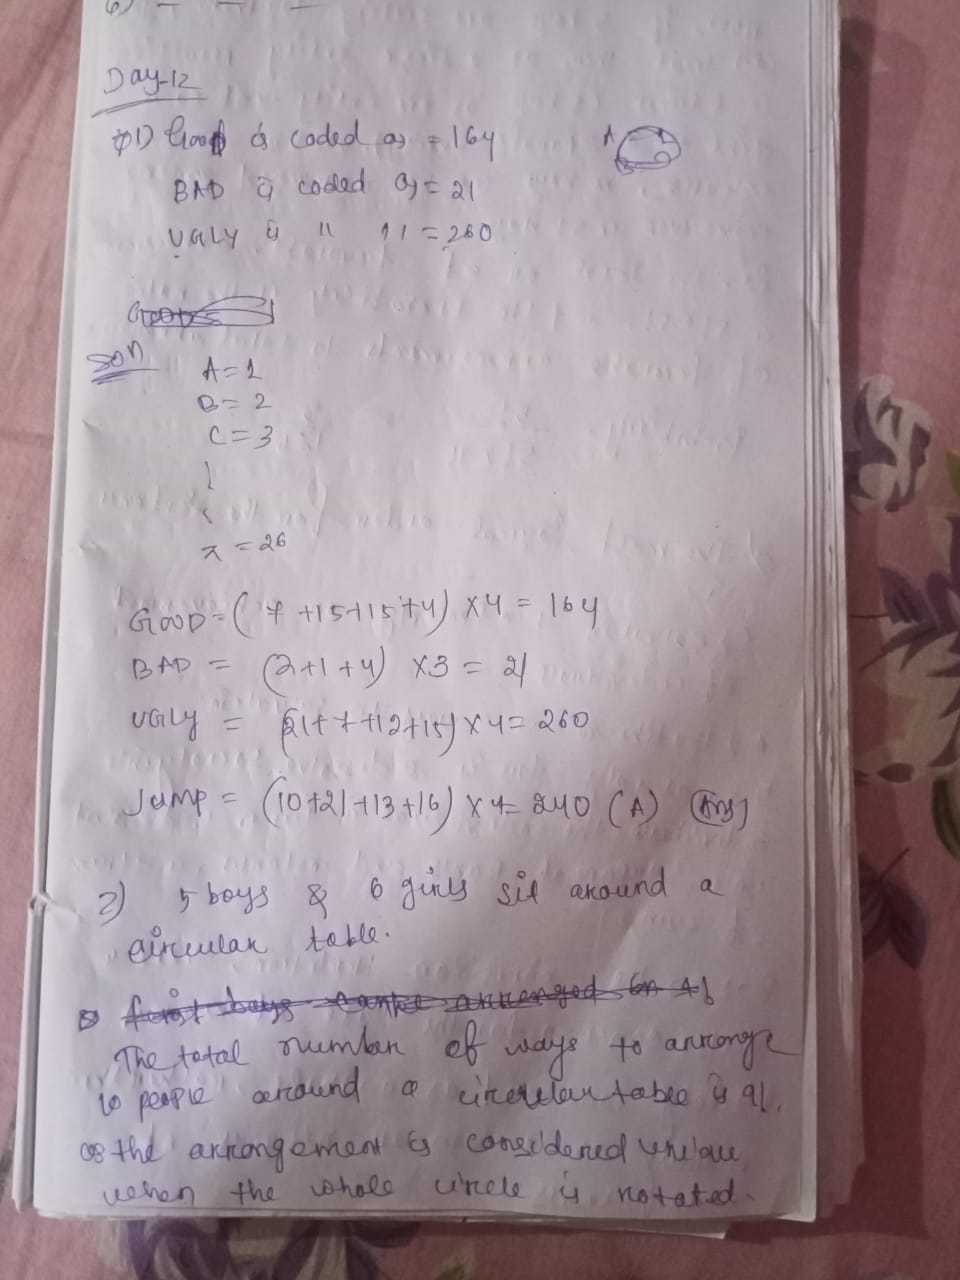 Day-12
1) Good is coded as = 164
BAD is coded as = 21
UGLY is 11 11 = 260
A
B
Soln
A = 1
B = 2
C = 3
z = 26
GOOD = (7 +15+15+4) x4 = 164
BAD = (2+1+4) x3 = 21
UGLY = (21+7+12+15) x 4 = 260
Jump = (10+21+13+16) x 4= 240 (A) (Ans)
2) 5 boys & 6 girls sit around a
circular table.
The total number of ways to arrange
10 people around a circular table is 9!.
as the arrangement is considered unique
when the whole circle is rotated.